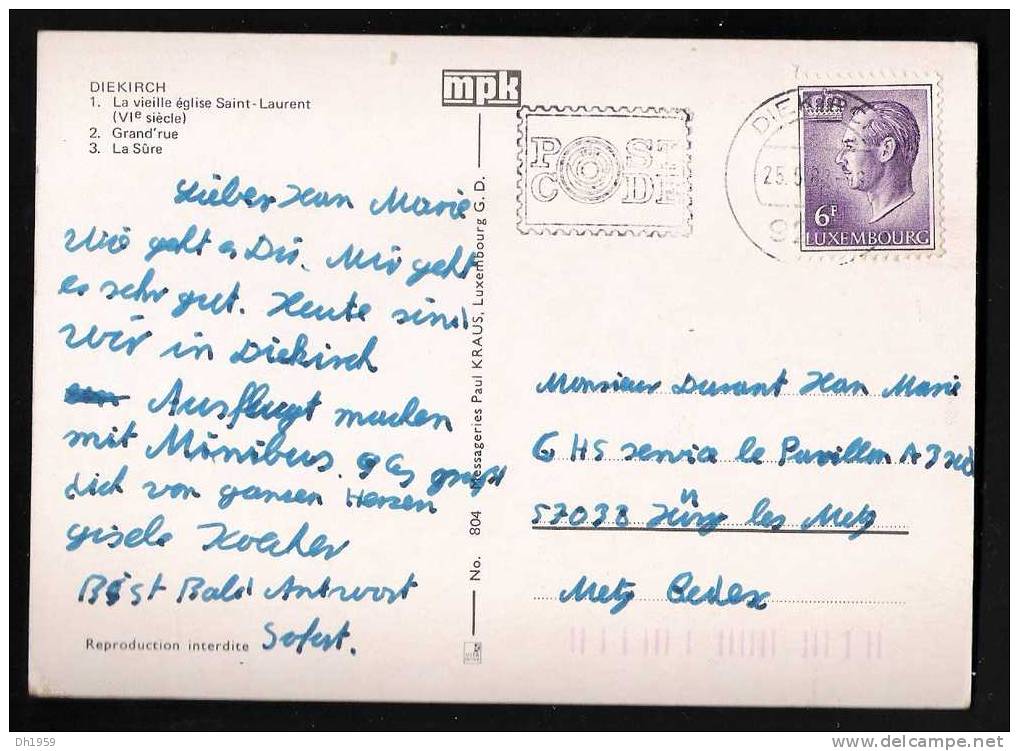 DIEKIRCH
1. La vieille église Saint-Laurent
(VIe siècle)
2. Grand'rue
3. La Sûre
mpk
POST
CODE
DIEKIRCH
25.
LUXEMBOURG
6F
Lieber Jean Marie
Wie geht es Dir. Mir geht
es sehr gut. Heute sind
wir in Diekirch
Ausflugt machen
mit Minibus.
dich von ganzen Herzen
Gisele
Bist Bald Antwort
Sofort.
Reproduction interdite
No. 804 Messageries Paul KRAUS, Luxembourg G. D.
Monsieur Durant Jean Marie
C HS service le Pavillon A3
57038 Jury les Metz
Metz Cedex
Dh1959
delcampe.net